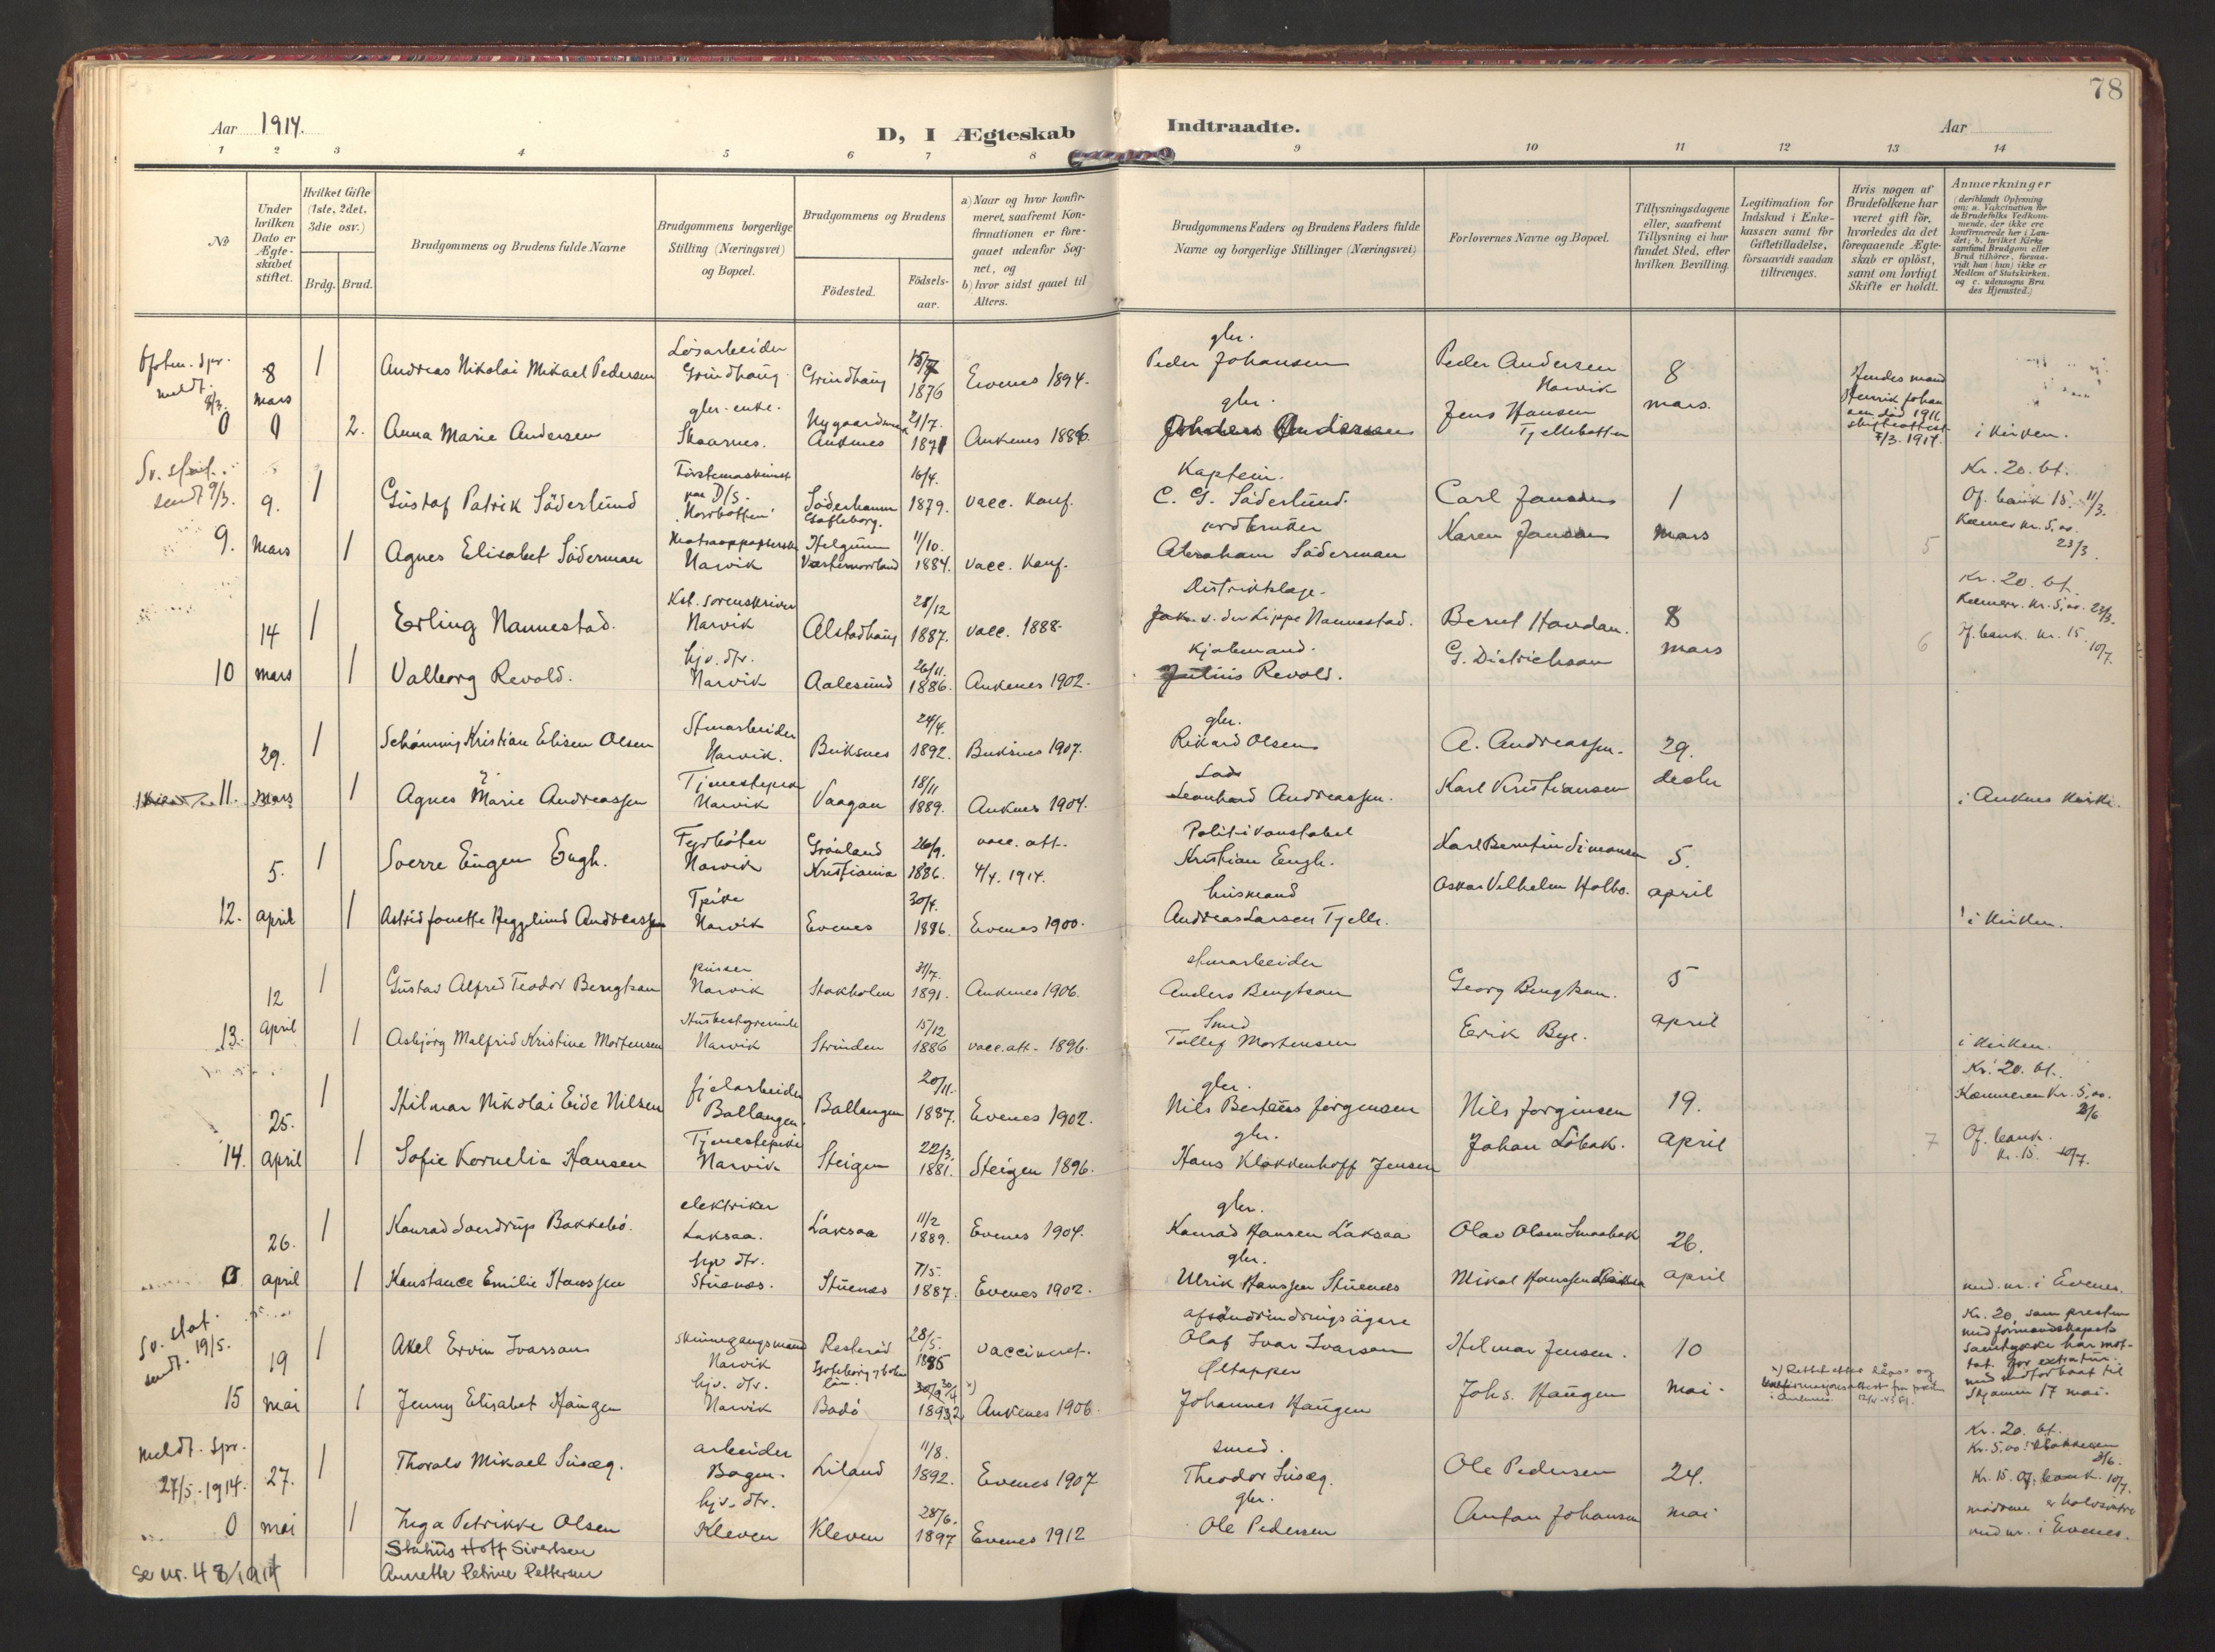 78
Aar 1914.
D, I Ægteskab Indtraadte.
Aar
1 2 3 4 5 6 7 8 9 10 11 12 13 14
No
Under hvilken Dato er Ægteskabet stiftet.
Hvilket Gifte (1ste, 2det, 3die osv.)
Brdg. Brud.
Brudgommens og Brudens fulde Navne
Brudgommens borgerlige Stilling (Næringsvei) og Bopæl.
Brudgommens og Brudens
Födested.
Födsels-aar.
a) Naar og hvor konfirmeret, saafremt Konfirmationen er foregaaet udenfor Sognet, og
b) hvor sidst gaaet til Alters.
Brudgommens Faders og Brudens Faders fulde Navne og borgerlige Stillinger (Næringsvei)
Forlovernes Navne og Bopæl.
Tillysningsdagene eller, saafremt Tillysning ei har fundet Sted, efter hvilken Bevilling.
Legitimation for Indskud i Enkekassen samt for Giftetilladelse, forsaavidt saadan tiltrænges.
Hvis nogen af Brudefolkene har været gift för, hvorledes da det foregaaende Ægteskab er oplöst, samt om lovligt Skifte er holdt.
Anmærkninger
(deriblandt Oplysning om: a. Vakcination for de Brudefolks Vedkommende, der ikke ere konfirmerede her i Landet; b. hvilket Kirkesamfund Brudgom eller Brud tilhörer, forsaavidt han (hun) ikke er Medlem af Statskirken, og c. udensogns Brudes Hjemsted.)
meldt. 8/3.
8 mars 1 Andreas Nikolai Mikael Pedersen Lösarbeider Grindhaug Grindhaug 15/7 1876 Evenes 1894. gbr. Peder Johansen Peder Andersen Narvik 8 mars.
0 2. Anna Marie Andersen gbr. enke. Skaarnes. Ankenes 21/7. 1871 Ankenes 1886. gbr. Andersen Jens Hansen Tjeldebotten
död 1911 7/3. 1914. i kirken.
Sv. stat. sendt 9/3.
9. mars 1 Gustaf Patrik Söderlund Förstemaskinist paa D/S. "Norrbotten" Söderhamn Gefleborg. 16/4. 1879. vacc. konf. Kaptein. C. G. Söderlund. Carl Jansens 1 mars
Kr. 20. bt. Of. bank 15. 11/3. Kæmner kr. 5,00. 23/3.
9. 1 Agnes Elisabet Söderman Narvik Helgum Vesternorrland 11/10. 1884. vacc. konf. Abraham Söderman Karen Jansen 5
14 mars 1 Erling Nannestad. Kst. sorenskriver Narvik Alstadhaug 28/12 1887. vacc. 1888. Distriktslæge. Jak. v. der Lippe Nannestad. Bernt Havdan. 8 mars
Kr. 20. bt. Kæmner. kr. 5,00. 23/3. Of. bank. kr. 15. 10/7.
10 1 Valborg Revold. hjv. dtr. Narvik Aalesund 26/11. 1886. Ankenes 1902. Kjöbmand. Julius Revold. G. Dietrichson 6
29. mars 1 Schönning Kristian Elisen Olsen Stuarbeider Narvik. Buksnes 24/4. 1892. Buksnes 1907. gbr. Rikard Olsen A. Andreassen. 29. desbr
11. 1 Agnes Marie Andreassen Tjenestepike Narvik Vaagan 18/11 1889. Ankenes 1904. Leonhard Andreassen. Karl Kristiansen i Ankenes kirke.
5. april 1 Sverre Eugen Engh. Fyrböter Narvik Grönland Kristiania 26/9. 1886. vacc. att. 4/4. 1914. Politikonstabel Kristian Engh. Karl Berntin Simonsen 5. april
12. 1 Astrid Jonette Hegglund Andreassen Tpike Narvik Evenes 30/4. 1886. Evenes 1900. husmand Andreas Larsen Tjelle. Oskar Vilhelm Holbo. i kirken.
12 april 1 Gustav Alfred Teodor Bengtson pusser Narvik Stokholm 31/7. 1891. Ankenes 1906. Anders Bengtson Georg Bengtson. 5 april
13. 1 Asbjörg Malfrid Kristine Mortensen Husbestyrerinde Narvik Strinden 15/12 1886 vacc. att. 1896. Smed Tollef Mortensen Erik Bye. i kirken.
25. april 1 Hilmar Nikolai Eide Nilsen fjelarbeider Ballangen. Ballangen 20/11. 1887. Evenes 1902. gbr. Nils Berteus Jörgensen Nils Jorginsen 19. april
Kr. 20. bt. Kæmneren kr. 5,00. 2/6 Of. bank. kr. 15. 10/7.
14. 1 Sofie Kornelia Hansen Tjenestepike Narvik Steigen 22/3. 1881. Steigen 1896. gbr. Hans Klokkenhoff Jensen Johan Löbak. 7
26. april 1 Konrad Sverdrup Bakkebö. elektriker Laksaa. Laksaa 11/2 1889. Evenes 1904. gbr. Konrad Hansen Laksaa Olav Olsen 26. april
0 1 Konstance Emilie Hanssen hjv dtr. Stuenes. Stuenes 7/5. 1887. Evenes 1902. gbr. Ulrik Hanssen Stuenes Mikal Hanssen med. nr. i Evenes.
Sv. stat. sendt. 19/5.
19 mai 1 Axel Ervin Ivarsson Narvik Göteborg 28/5. 1885 vaccineret. Olof Ivar Ivarson Hilmar Jensen. 10 mai.
Kr. 20, som presten med formandskapets samtykke har mottat for extratur med motorbaat til Skjomen 17 mai.
15 1 Jenny Elisabet Haugen hjv. dtr. Narvik Bodö 30/4 x) 1892 Ankenes 1906. Öltapper Johannes Haugen Johs. Haugen
meldt. spr. 27/5. 1914.
27. mai 1 Thoralv Mikael Liisæg. arbeider Bogen. Liland 11/8. 1892. Evenes 1907 smed. Theodor Liisæg. Ole Pedersen 24. mai
Kr. 20. bt. Kr. 15. Of. bank. 10/7.
0 1 Inga Petrikke Olsen hjv. dtr. Kleven Kleven 28/6. 1897 Evenes 1912 gbr. Ole Pedersen Anton Johansen med nr. i Evenes.
se nr. 48/1914 Statius Hoff Sivertsen
Annette Petrine Pettersen